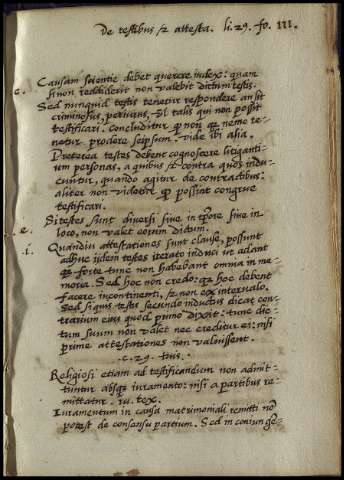 De testibus & attesta. li. 29. fo. 111.
Causam scientie debet querere iudex: quam
e. si non reddiderit non valebit dictum testis.
Sed nunquid testis tenetur respondere an sit
criminosus, periurus, vel talis qui non possit
testificari. Concluditur qd non qr nemo te-
netur prodere seipsum. vide ibi alia.
Preterea testes debent cognoscere litiganti-
um personas, a quibus & contra quos indu-
cuntur, quando agitur de contractibus:
aliter non videtur qd possint congrue
testificari.
Si testes sunt diversi sive in tpore sive in
e. loco, non valet eorum dictum.
i. Quandiu attestationes sunt clause, possunt
adhuc ijdem testes iterato induci ut adant
qd forte tunc non habebant omnia in me-
moria. Sed hoc non credo: qr hoc debent
facere incontinenti, & non ex intervalo.
Sed si quis testis secundo inductus dicat con-
trarium eius quod primo dixit: tunc dic-
tum suum non valet nec creditur ei: nisi
prime attestationes non valuissent.
.c. 29. tuis.
Religiosi etiam ad testificandum non admit-
tuntur absq iuramento: nisi a partibus re-
mittatur. iu. tex.
Iuramentum in causa matrimoniali remitti no
potest de consensu partium. Sed in coniunge-